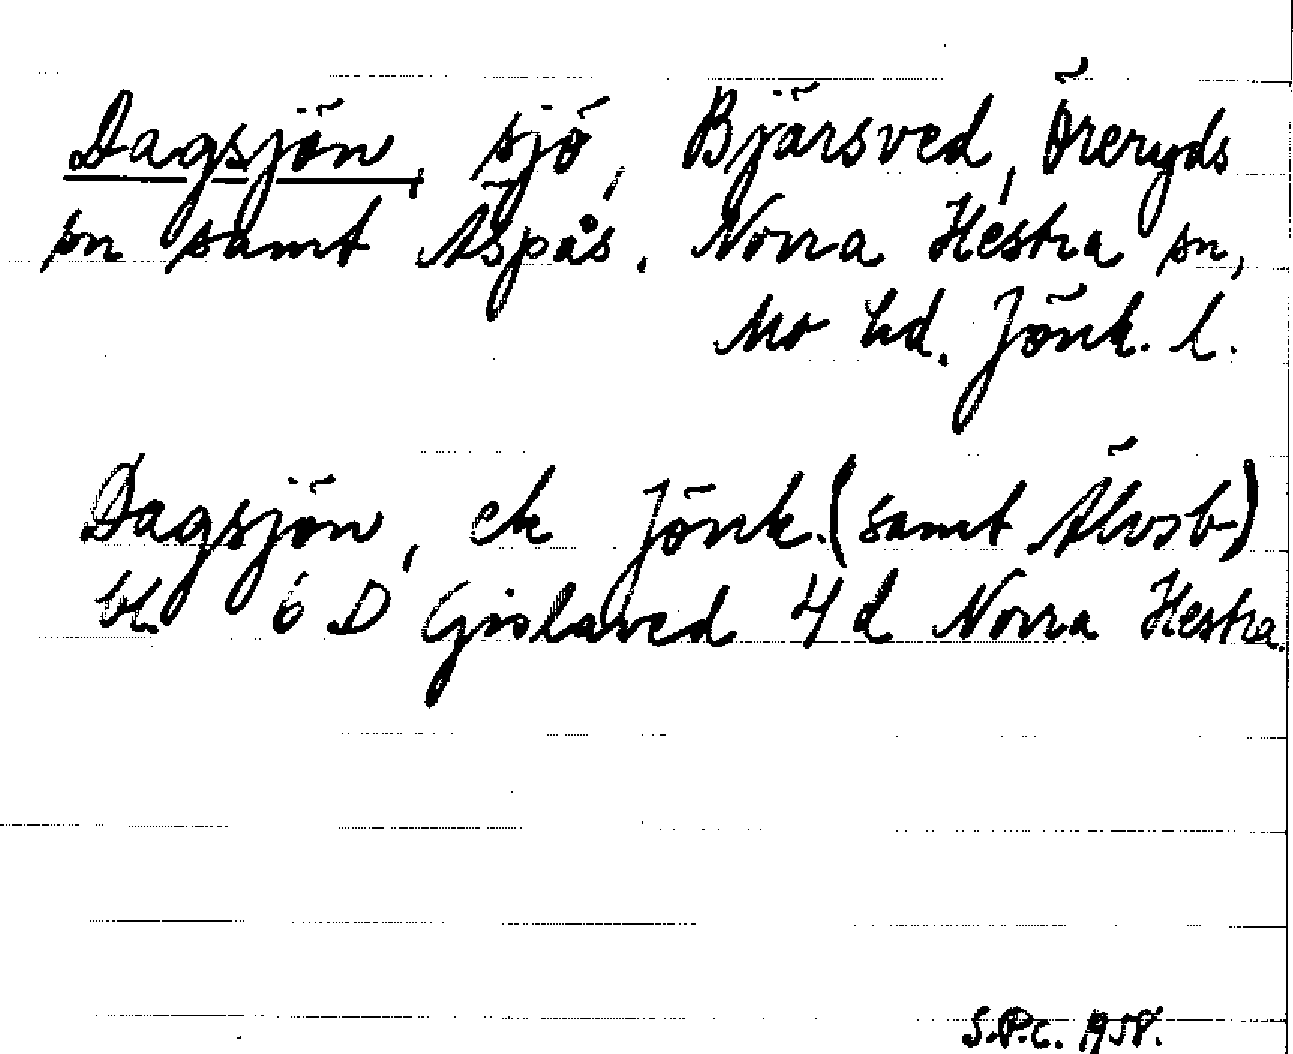 Dagsjön, sjö, Bjärsved, Öreryds
sn samt Äspås, Norra Hestra sn,
Mo hd. Jönk. l.
Dagsjön, ek Jönk. (samt Älvsb)
bl. 6 D Gislaved 4 d Norra Hestra.
S.P.C. 1958.